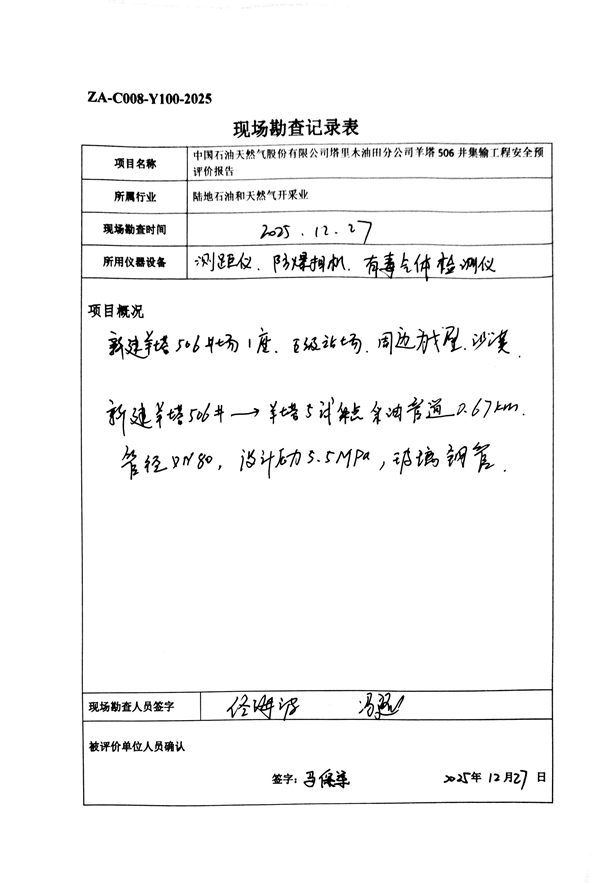 ZA-C008-Y100-2025
现场勘查记录表
项目名称
中国石油天然气股份有限公司塔里木油田分公司羊塔 506 井集输工程安全预
评价报告
所属行业
陆地石油和天然气开采业
现场勘查时间
2025.12.27
所用仪器设备
测距仪、防爆相机、有毒气体检测仪
项目概况
新建羊塔506井场1座、五级站场、周边为戈壁、沙漠
新建羊塔506井→羊塔5试采点 油管道0.67km.
管径DN80, 设计压力5.5MPa, 玻璃钢管.
现场勘查人员签字
冯
被评价单位人员确认
签字: 马保
2025年12月27日